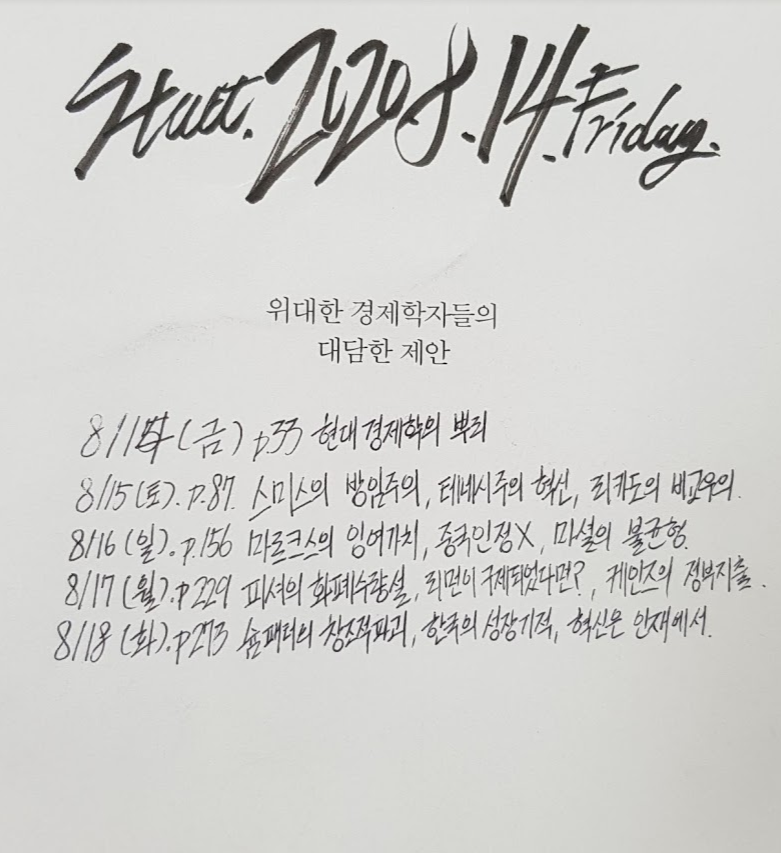 Start. 2020.8.14. Friday.
위대한 경제학자들의
대담한 제안
8/14 (금) p.33 현대 경제학의 뿌리
8/15 (토). p.87. 스미스의 방임주의, 테네시주의 혁신, 리카도의 비교우위.
8/16 (일). p.156 마르크스의 잉여가치, 중국인정X, 마셜의 불균형.
8/17 (월). p229 피셔의 화폐수량설, 리먼이 구제되었다면?, 케인즈의 정부지출.
8/18 (화). p273 슘페터의 창조적파괴, 한국의 성장기적, 혁신은 인재에서.